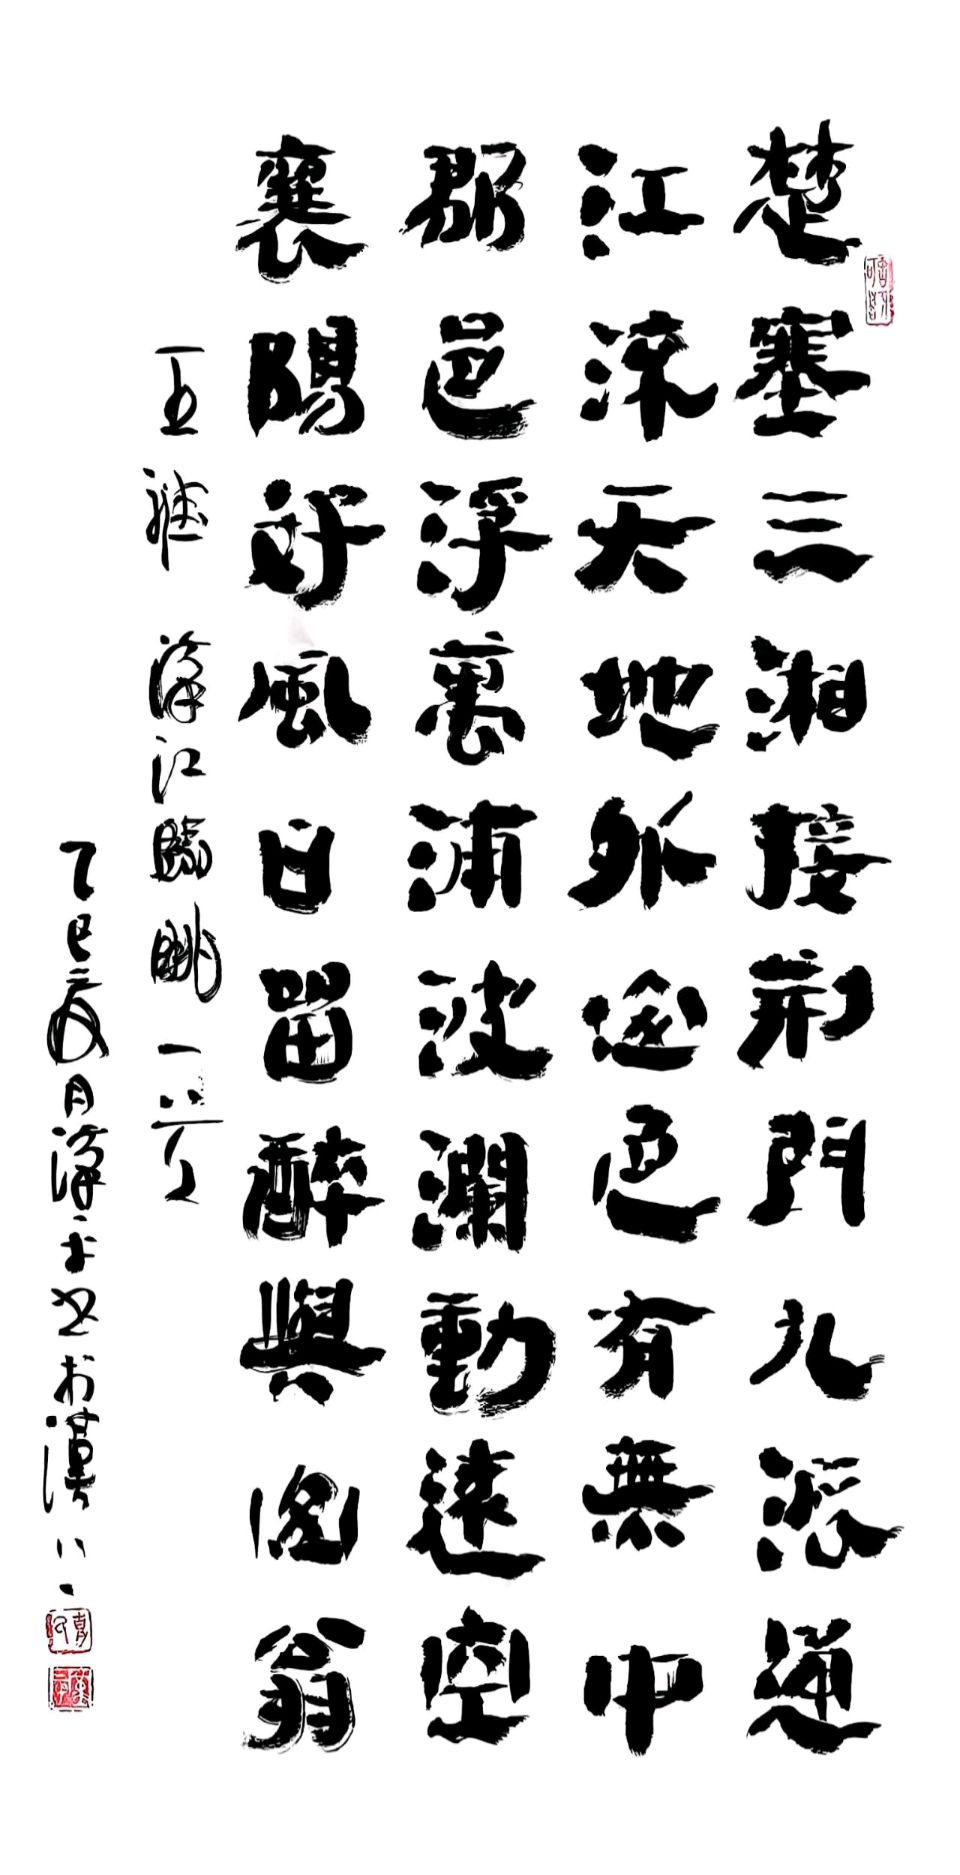 楚塞三湘接荊門九派通
江流天地外山色有無中
郡邑浮萬浦波瀾動遠空
襄陽好風日留醉與山翁
王維漢江臨眺一首
乙巳夏月漢平书於漢上